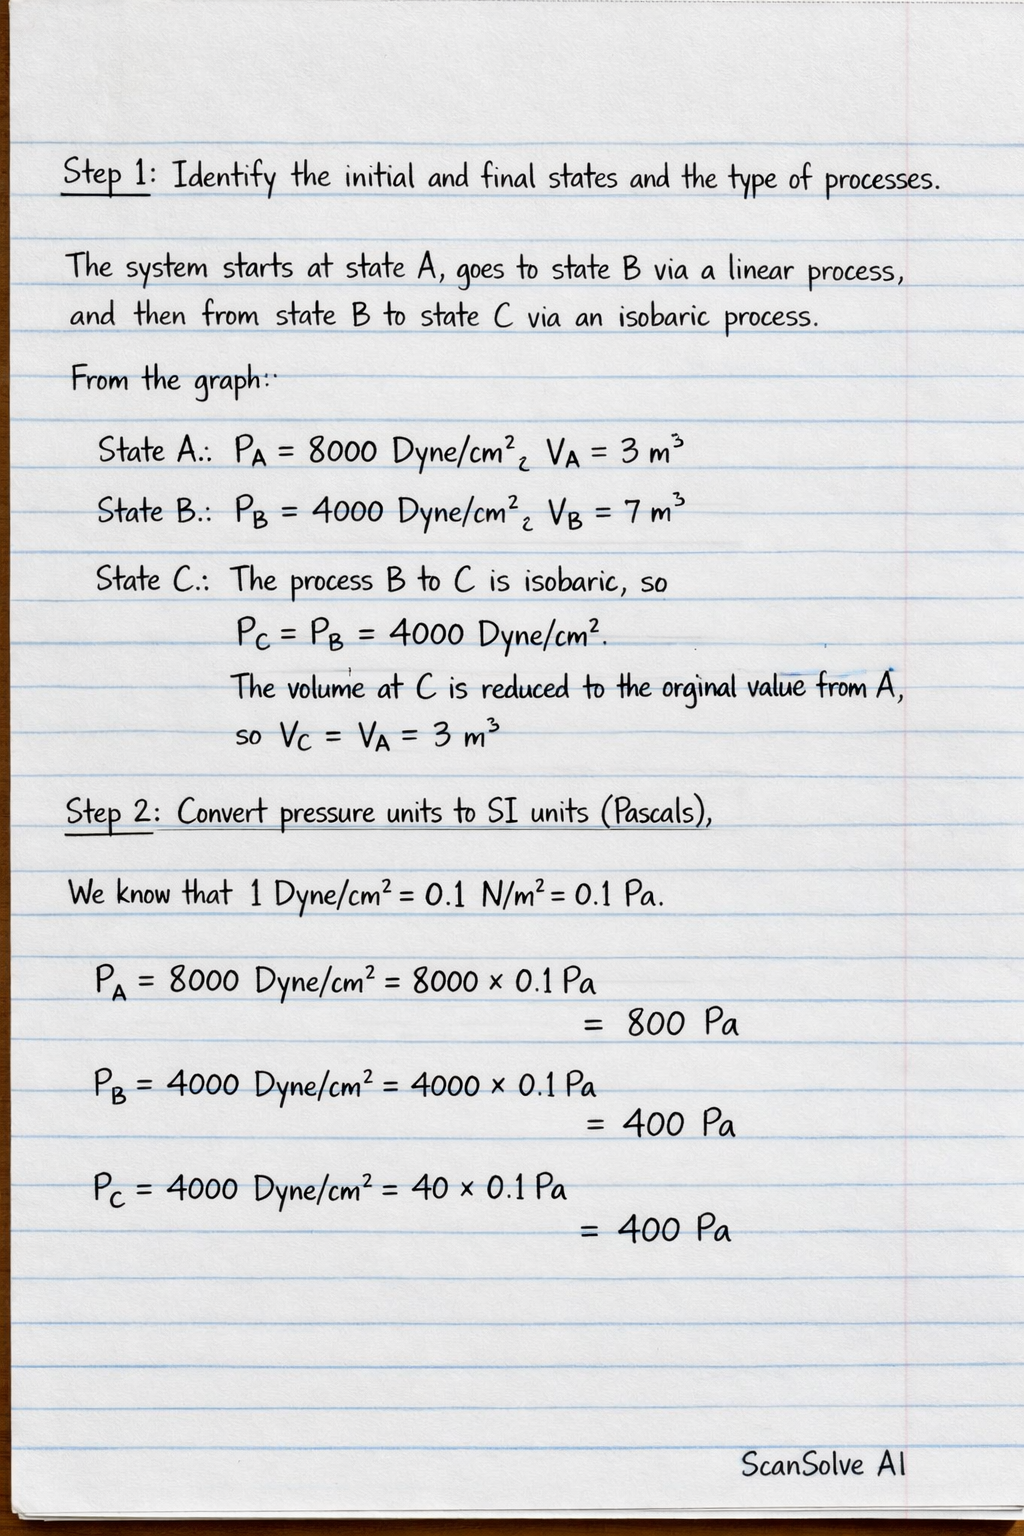 Step 1: Identify the initial and final states and the type of processes.
The system starts at state A, goes to state B via a linear process,
and then from state B to state C via an isobaric process.
From the graph:·
State A.: P_A = 8000 Dyne/cm², V_A = 3 m³
State B.: P_B = 4000 Dyne/cm², V_B = 7 m³
State C.: The process B to C is isobaric, so
P_C = P_B = 4000 Dyne/cm².
The volume at C is reduced to the orginal value from A,
so V_C = V_A = 3 m³
Step 2: Convert pressure units to SI units (Pascals),
We know that 1 Dyne/cm² = 0.1 N/m² = 0.1 Pa.
P_A = 8000 Dyne/cm² = 8000 × 0.1 Pa
= 800 Pa
P_B = 4000 Dyne/cm² = 4000 × 0.1 Pa
= 400 Pa
P_C = 4000 Dyne/cm² = 40 × 0.1 Pa
= 400 Pa
ScanSolve AI